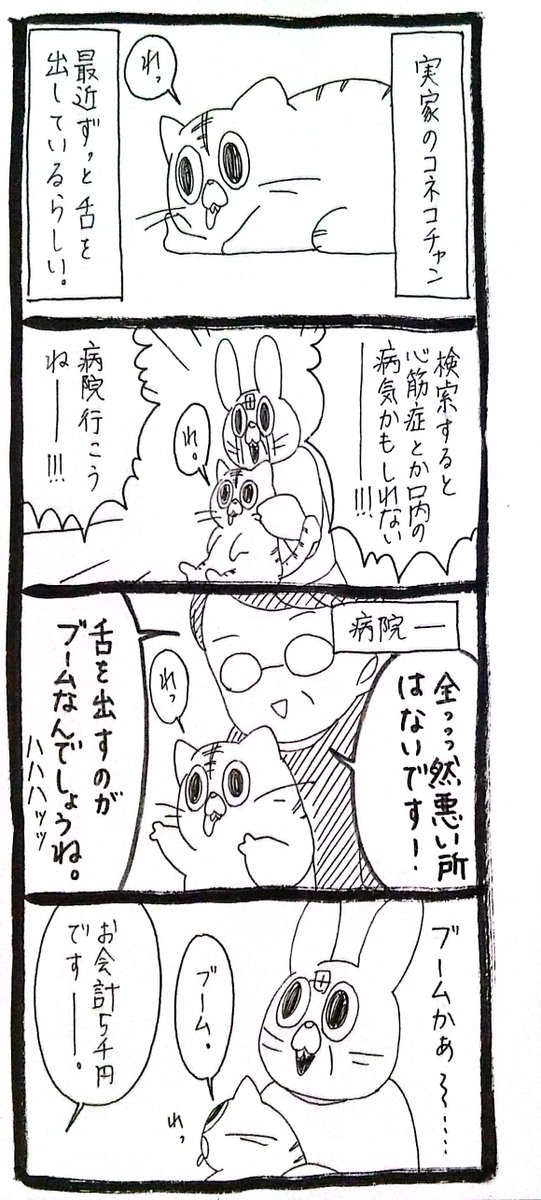 実家のコネコチャン
れっ
最近ずっと舌を
出しているらしい。
検索すると
心筋症とか口内の
病気かもしれない
―――!!!
れ。
病院行こう
ね―――!!!
病院―
全っっっ然悪い所
はないです!
れっ
舌を出すのが
ブームなんでしょうね。
ハハハッッ
ブームかぁ〜〜……
ブーム。
れっ
お会計5千円
です―――。